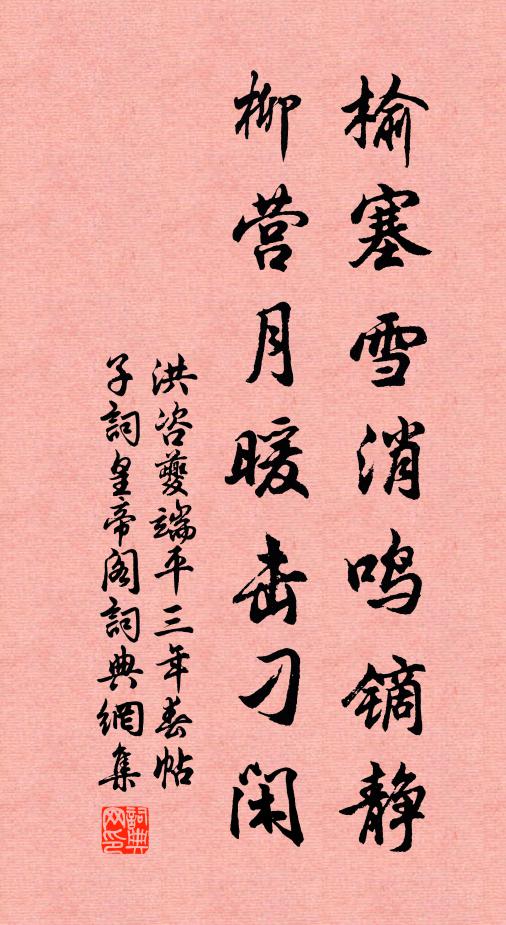 榆塞雪消鸣镝静
柳营月暖击刁闲
洪咨夔端平三年春帖
子詞皇帝阁詞典網集
詞典
网印